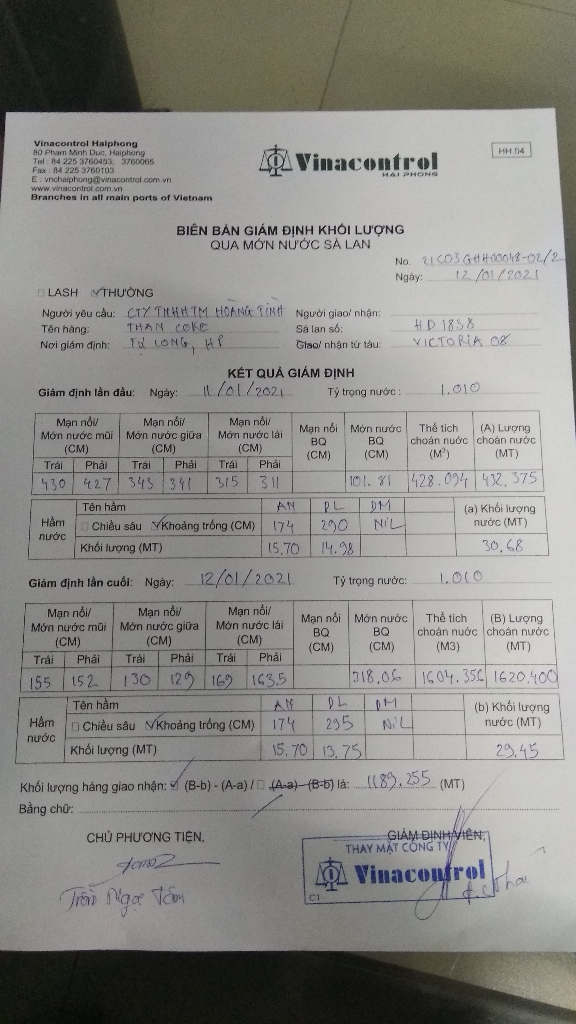 Vinacontrol Haiphong
80 Pham Minh Duc, Haiphong
Tel : 84 225 3760453; 3760065
Fax : 84 225 3760103
E : vnchaiphong@vinacontrol.com.vn
www.vinacontrol.com.vn
Branches in all main ports of Vietnam
Vinacontrol
HAI PHONG
HH.04
BIÊN BẢN GIÁM ĐỊNH KHỐI LƯỢNG
QUA MỚN NƯỚC SÀ LAN
No. 21C03GHH00048-02/2
Ngày: 12/01/2021
LASH THƯỜNG
Người yêu cầu: CTY TNHHTM HOÀNG TÍNH Người giao/ nhận:
Tên hàng: THAN COKE Sà lan số: HD 1838
Nơi giám định: TỰ LONG, HP Giao/ nhận từ tàu: VICTORIA 08
KẾT QUẢ GIÁM ĐỊNH
Giám định lần đầu: Ngày: 11/01/2021 Tỷ trọng nước: 1.010
Mạn nổi/ Mớn nước mũi (CM) Mạn nổi/ Mớn nước giữa (CM) Mạn nổi/ Mớn nước lái (CM) Mạn nổi BQ (CM) Mớn nước BQ (CM) Thể tích choán nước (M³) (A) Lượng choán nước (MT)
Trái Phải Trái Phải Trái Phải
430 427 343 341 315 311 101.81 428.094 432.375
Hầm nước Tên hầm AN DL DM (a) Khối lượng nước (MT)
Chiều sâu Khoảng trống (CM) 174 290 NIL
Khối lượng (MT) 15.70 14.98 30.68
Giám định lần cuối: Ngày: 12/01/2021 Tỷ trọng nước: 1.010
Mạn nổi/ Mớn nước mũi (CM) Mạn nổi/ Mớn nước giữa (CM) Mạn nổi/ Mớn nước lái (CM) Mạn nổi BQ (CM) Mớn nước BQ (CM) Thể tích choán nước (M3) (B) Lượng choán nước (MT)
Trái Phải Trái Phải Trái Phải
155 152 130 129 169 163.5 318.06 1604.356 1620.400
Hầm nước Tên hầm AN DL DM (b) Khối lượng nước (MT)
Chiều sâu Khoảng trống (CM) 174 295 NIL
Khối lượng (MT) 15.70 13.75 29.45
Khối lượng hàng giao nhận: (B-b) - (A-a) / (A-a) - (B-b) là: 1189.255 (MT)
Bằng chữ:
CHỦ PHƯƠNG TIỆN, GIÁM ĐỊNH VIÊN,
THAY MẶT CÔNG TY
Vinacontrol
C1
Trần Ngọc Tấm